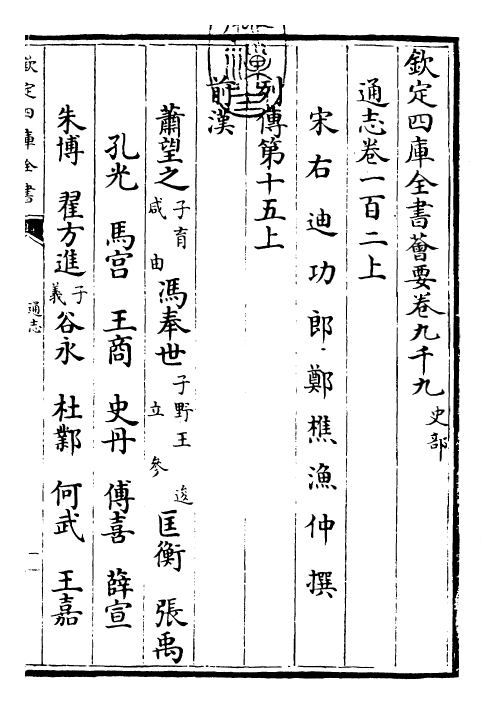 欽定四庫全書薈要卷九千九 史部
通志卷一百二上
宋右迪功郎鄭樵漁仲撰
列傳第十五上
前漢
蕭望之 子育 咸 由 馮奉世 子野王 逡 立 參 匡衡 張禹
孔光 馬宮 王商 史丹 傅喜 薛宣
朱博 翟方進 子義 谷永 杜鄴 何武 王嘉
欽定四庫全書
通志
一